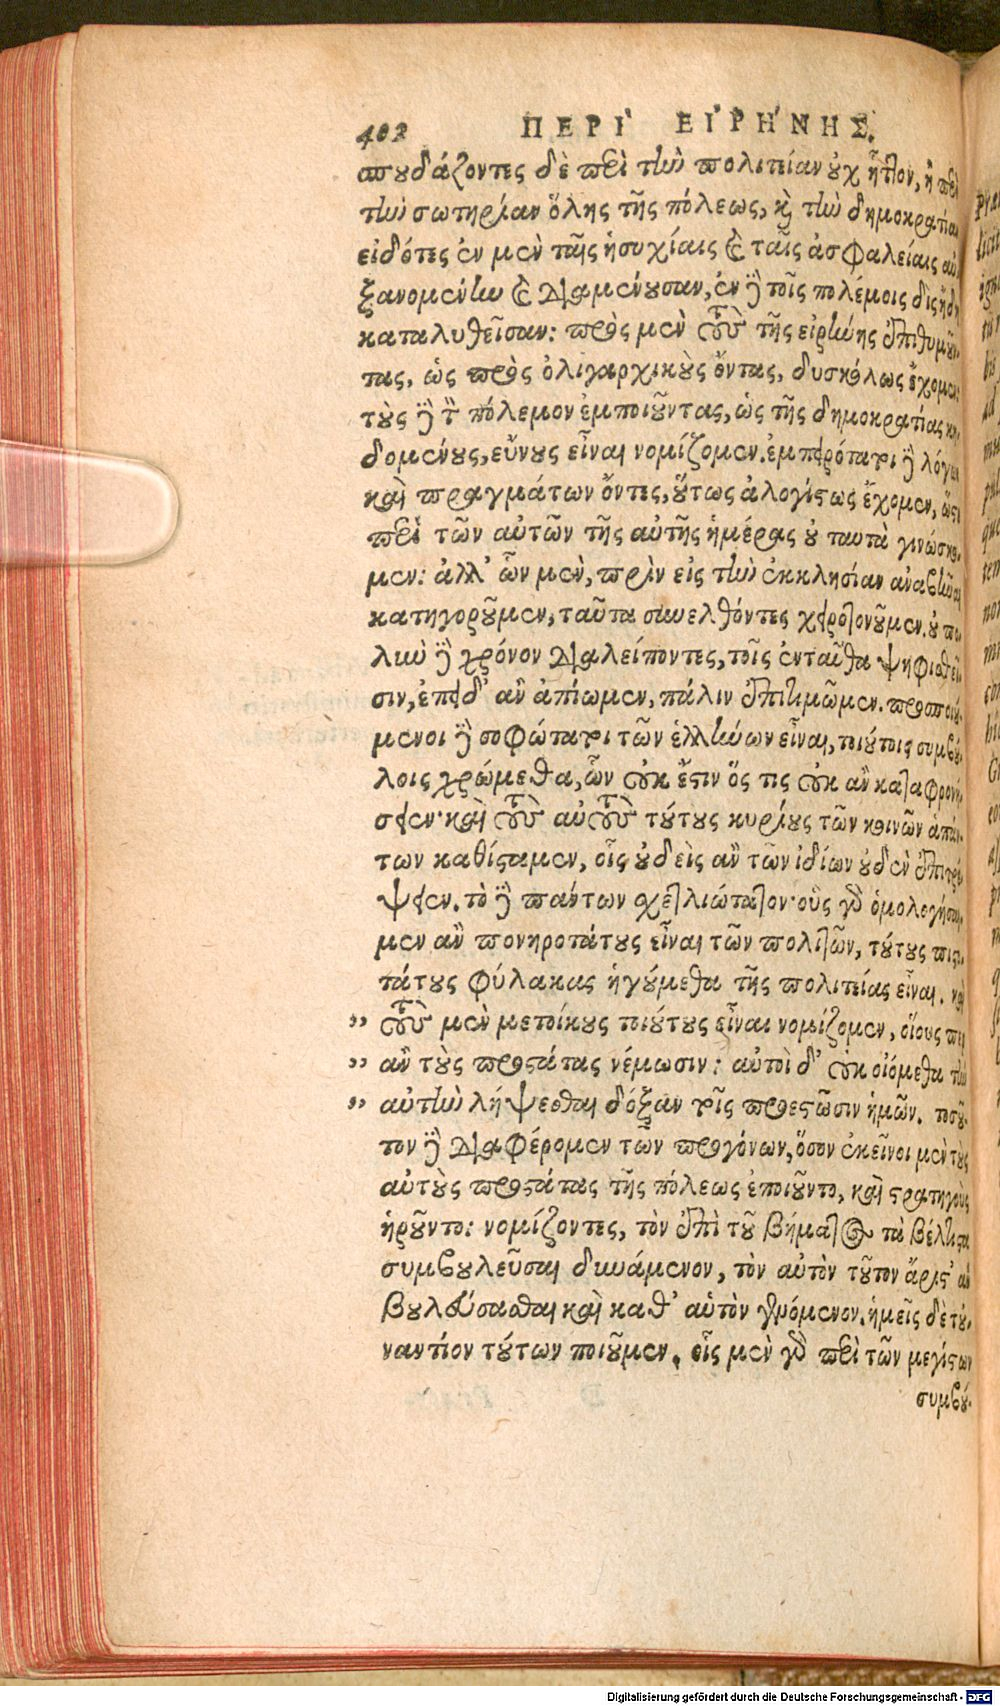 402 ΠΕΡΙ ΕΙΡΗΝΗΣ.
σπουδάζοντες δὲ περὶ τὴν πολιτείαν οὐχ ἧττον, ἢ περὶ
τὴν σωτηρίαν ὅλης τῆς πόλεως, καὶ τὴν δημοκρατίαν
εἰδότες ἐν μὲν ταῖς ἡσυχίαις καὶ ταῖς ἀσφαλείαις αὐ-
ξανομένην καὶ διαμένουσαν, ἐν δὲ τοῖς πολέμοις δὶς ἤδη
καταλυθεῖσαν: πρὸς μὲν τοὺς τῆς εἰρήνης ἐπιθυμοῦν-
τας, ὡς πρὸς ὀλιγαρχικοὺς ὄντας, δυσκόλως ἔχομεν:
τοὺς δὲ τὸν πόλεμον ἐμποιοῦντας, ὡς τῆς δημοκρατίας κη-
δομένους, εὔνους εἶναι νομίζομεν. ἐμπειρότατοι δὲ λόγων
καὶ πραγμάτων ὄντες, οὕτως ἀλογίστως ἔχομεν, ὥστε
περὶ τῶν αὐτῶν τῆς αὐτῆς ἡμέρας οὐ ταυτὰ γινώσκο-
μεν: ἀλλ' ὧν μὲν, πρὶν εἰς τὴν ἐκκλησίαν ἀναβῆναι
κατηγοροῦμεν, ταῦτα συνελθόντες χειροτονοῦμεν. οὐ πο-
λὺν δὲ χρόνον διαλείποντες, τοῖς ἐνταῦθα ψηφισθεῖ-
σιν, ἐπειδ' ἂν ἀπίωμεν, πάλιν ἐπιτιμῶμεν. προσποιού-
μενοι δὲ σοφώτατοι τῶν ἑλλήνων εἶναι, τοιούτοις συμβού-
λοις χρώμεθα, ὧν οὐκ ἔστιν ὅς τις οὐκ ἂν καταφρονή-
σειεν· καὶ τοὺς αὐτοὺς τούτους κυρίους τῶν κοινῶν ἁπάν-
των καθίσταμεν, οἷς οὐδεὶς ἂν τῶν ἰδίων οὐδὲν ἐπιτρέ-
ψειεν. τὸ δὲ πάντων σχετλιώτατον· οὓς γὰρ ὁμολογήσαι-
μεν ἂν πονηροτάτους εἶναι τῶν πολιτῶν, τούτους πιστο-
τάτους φύλακας ἡγούμεθα τῆς πολιτείας εἶναι. καὶ
" τοὺς μὲν μετοίκους τοιούτους εἶναι νομίζομεν, οἵους περ
" ἂν τοὺς προστάτας νέμωσιν: αὐτοὶ δ' οὐκ οἰόμεθα τὴν
" αὐτὴν λήψεσθαι δόξαν τοῖς προεστῶσιν ἡμῶν. τοσοῦ-
τον δὲ διαφέρομεν τῶν προγόνων, ὅσον ἐκεῖνοι μὲν τοὺς
αὐτοὺς προστάτας τῆς πόλεως ἐποιοῦντο, καὶ στρατηγοὺς
ᾑροῦντο: νομίζοντες, τὸν ἐπὶ τοῦ βήματος τὰ βέλτιστα
συμβουλεῦσαι δυνάμενον, τὸν αὐτὸν τοῦτον ἄριστ' ἂν
βουλεύσασθαι καὶ καθ' αὑτὸν γενόμενον. ἡμεῖς δὲ τοὐ-
ναντίον τούτων ποιοῦμεν. οἷς μὲν γὰρ περὶ τῶν μεγίστων
συμβού-
Digitalisierung gefördert durch die Deutsche Forschungsgemeinschaft - DFG